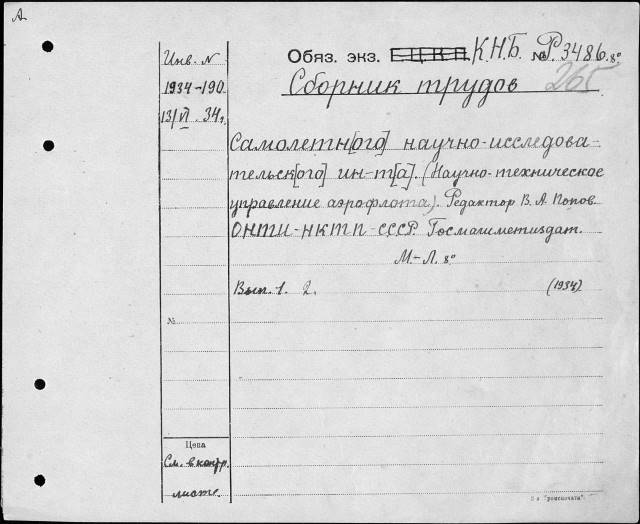 А.
Инв. N
1934-190
13/VI. 34г.
Обяз. экз. Е.Ц.К.П. К.Н.Б. № Р.3486. 8°
265
Сборник трудов
Самолетн[ого] научно-исследова-
тельск[ого] ин-т[а]. (Научно-техническое
управление аэрофлота). Редактор В. А. Попов.
ОНТИ-НКТП-СССР. Госмашметиздат.
М-Л. 8°
Вып. 1. 2. (1934)
№
Цена
См. в контр.
листе.